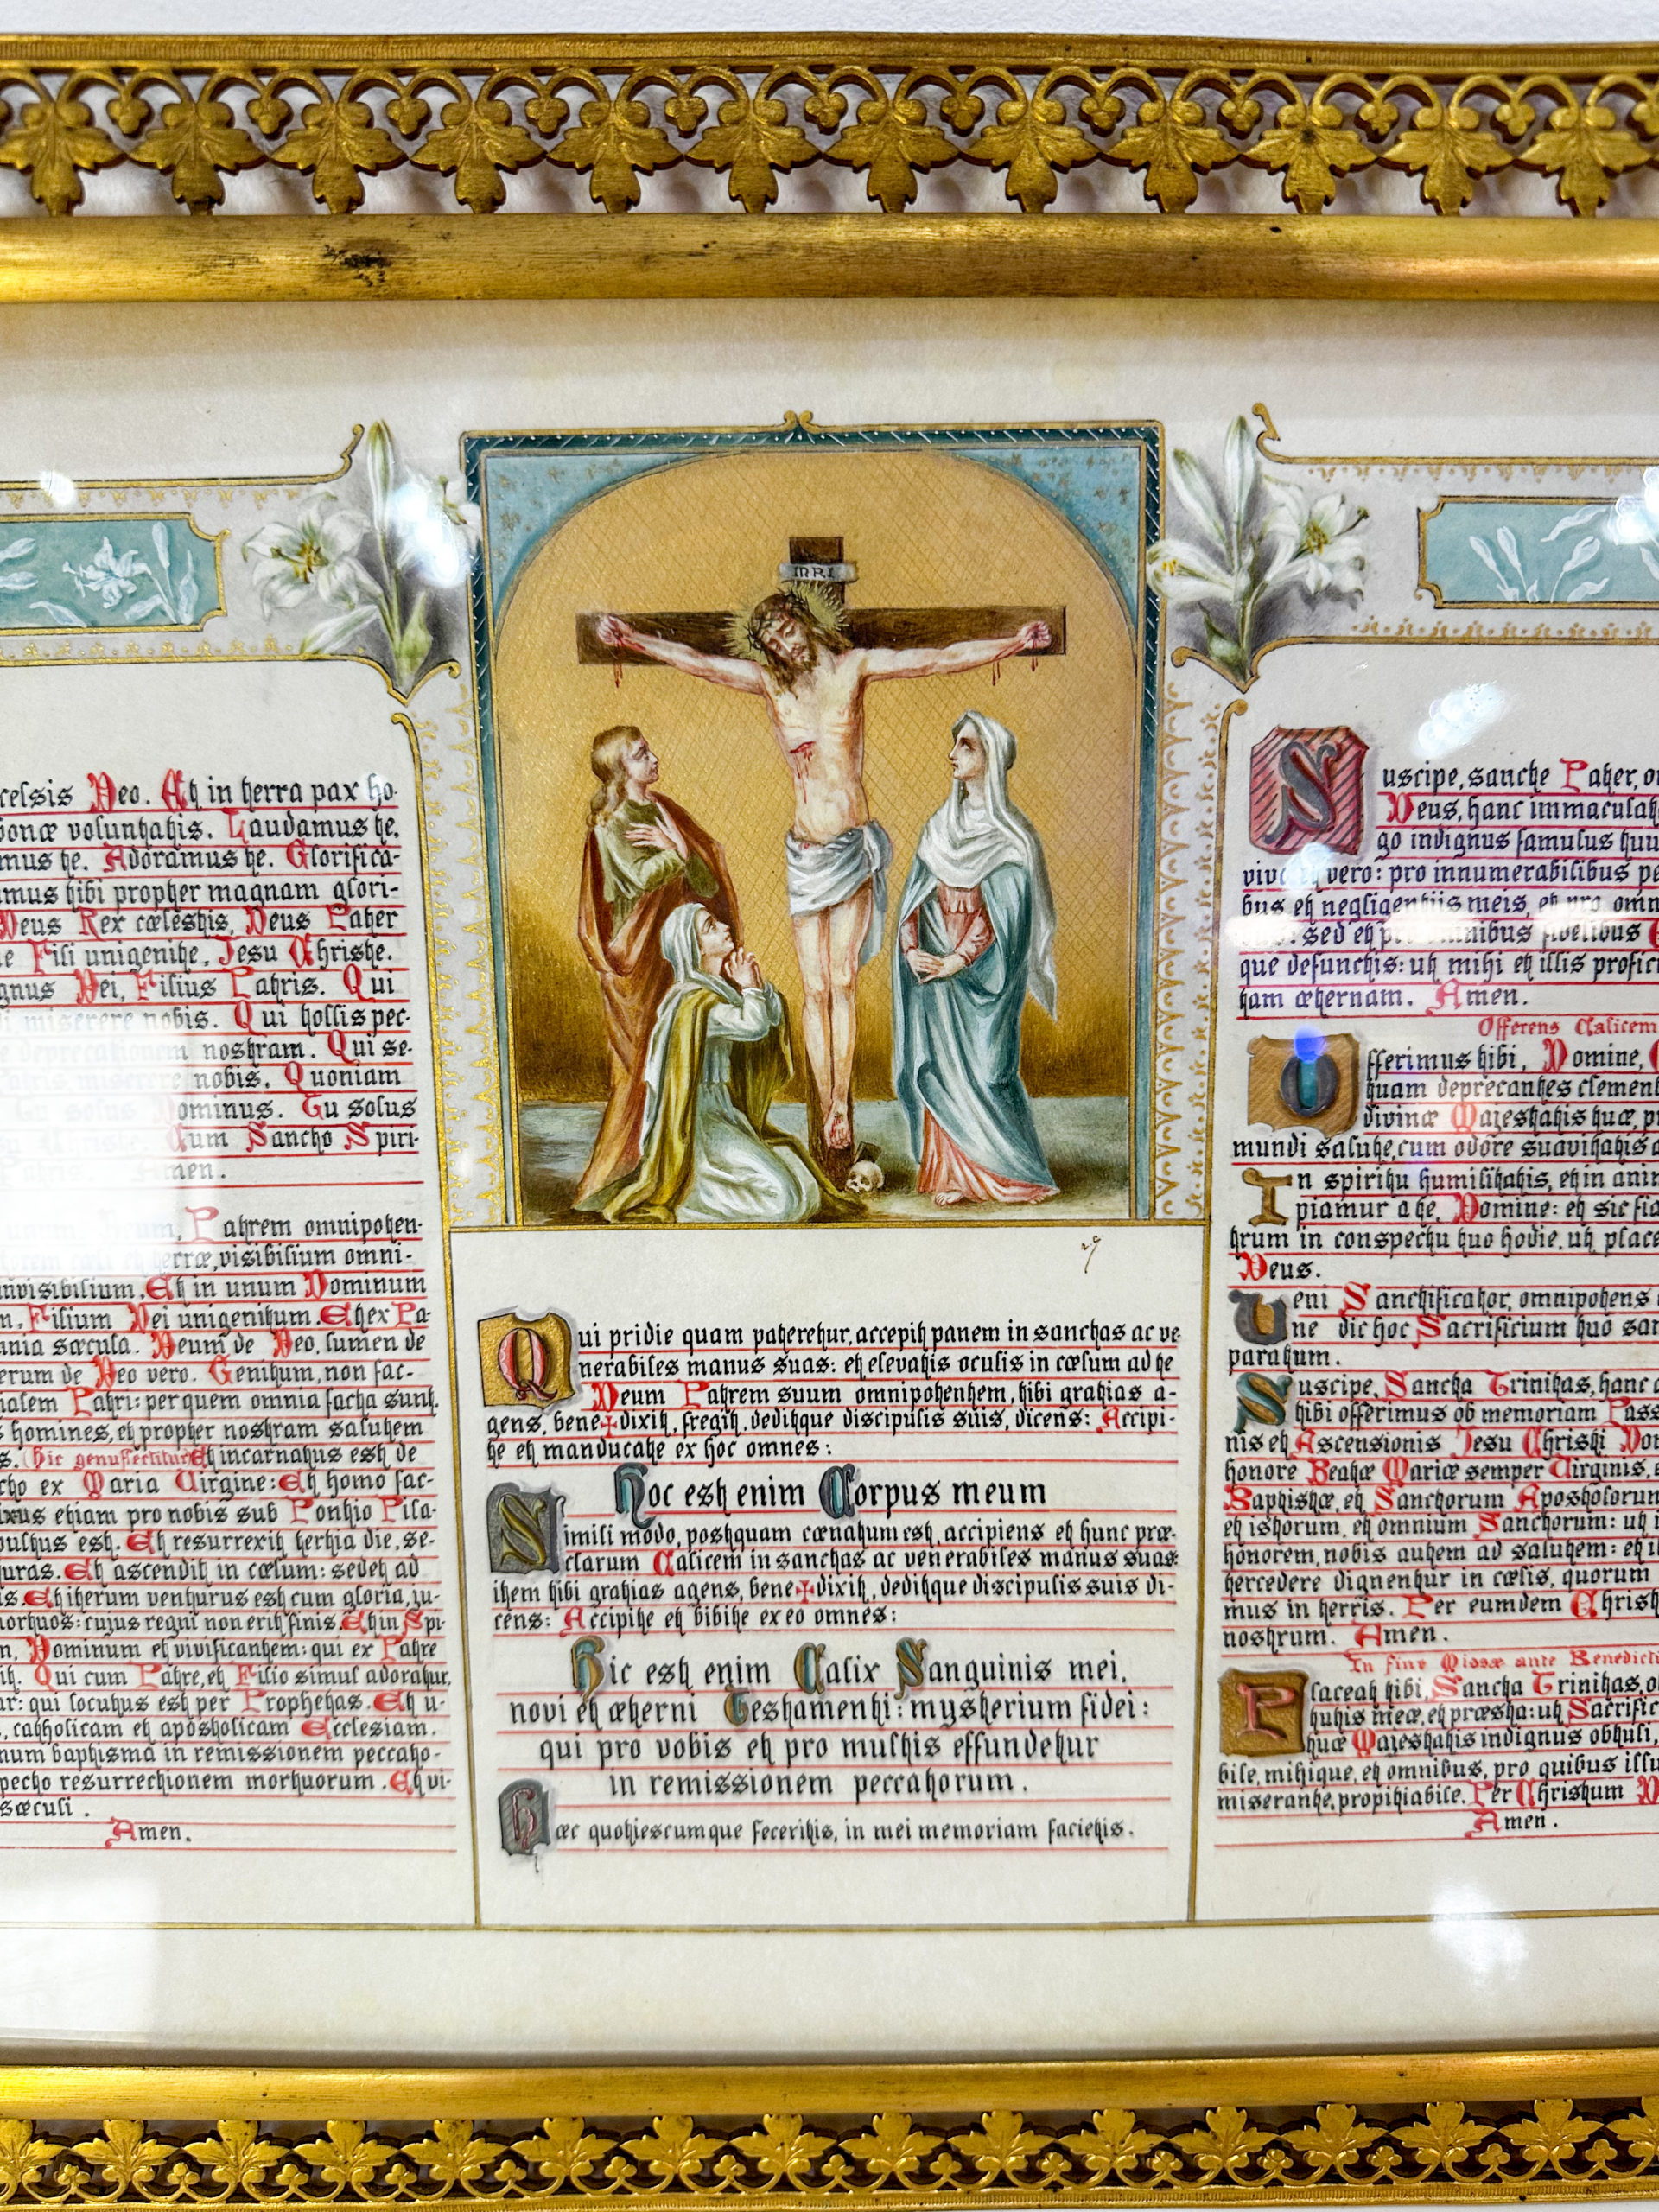 INRI
celsis Deo. Et in terra pax ho-
bonæ voluntatis. Laudamus te.
mus te. Adoramus te. Glorifica-
mus tibi propter magnam glori-
Deus Rex cœlestis, Deus Pater
e Fili unigenite, Jesu Christe.
gnus Dei, Filius Patris. Qui
i miserere nobis. Qui tollis pec-
e deprecationem nostram. Qui se-
nobis. Quoniam
Tu solus Dominus. Tu solus
Cum Sancto Spiri-
Amen.
Patrem omnipoten-
terræ, visibilium omni-
invisibilium. Et in unum Dominum
m, Filium Dei unigenitum. Et ex Pa-
nia sæcula. Deum de Deo, lumen de
erum de Deo vero. Genitum, non fac-
ialem Patri: per quem omnia facta sunt.
s homines, et propter nostram salutem
s. (hic genuflectitur) Et incarnatus est de
cto ex Maria Virgine: Et homo fac-
ixus etiam pro nobis sub Pontio Pila-
pultus est. Et resurrexit tertia die, se-
turas. Et ascendit in cœlum: sedet ad
is. Et iterum venturus est cum gloria, ju-
mortuos: cujus regni non erit finis. Et in Spi-
m, Dominum et vivificantem: qui ex Patre
it. Qui cum Patre, et Filio simul adoratur,
ur: qui locutus est per Prophetas. Et u-
, catholicam et apostolicam Ecclesiam.
num baptisma in remissionem peccato-
pecto resurrectionem mortuorum. Et vi-
sæculi.
Amen.
Qui pridie quam pateretur, accepit panem in sanctas ac ve
nerabiles manus suas: et elevatis oculis in cœlum ad te
Deum Patrem suum omnipotentem, tibi gratias a-
gens, bene✝dixit, fregit, deditque discipulis suis, dicens: Accipi-
te et manducate ex hoc omnes:
Hoc est enim Corpus meum
Simili modo, postquam cœnatum est, accipiens et hunc præ-
clarum Calicem in sanctas ac venerabiles manus suas:
item tibi gratias agens, bene✝dixit, deditque discipulis suis di-
cens: Accipite et bibite ex eo omnes:
Hic est enim Calix Sanguinis mei,
novi et æterni Testamenti: mysterium fidei:
qui pro vobis et pro multis effundetur
in remissionem peccatorum.
Hæc quotiescumque feceritis, in mei memoriam facietis.
Suscipe, sancte Pater, o
Deus, hanc immaculat
go indignus famulus tuu
vivo et vero: pro innumerabilibus pe
bus et negligentiis meis, et pro omn
sed et pro omnibus fidelibus
que defunctis: ut mihi et illis profic
tam æternam. Amen.
Offerens Calicem
Offerimus tibi, Domine,
quam deprecantes clement
divinæ Majestatis tuæ, pr
mundi salute, cum odore suavitatis a
In spiritu humilitatis, et in anim
piamur a te, Domine: et sic fia
trum in conspectu tuo hodie, ut place
Deus.
Veni Sanctificator, omnipotens
ne dic hoc Sacrificium tuo san
paratum.
Suscipe, Sancta Trinitas, hanc
tibi offerimus ob memoriam Pass
nis et Ascensionis Jesu Christi Dom
honore Beatæ Mariæ semper Virginis,
Baptistæ, et Sanctorum Apostolorum
et istorum, et omnium Sanctorum: ut i
honorem, nobis autem ad salutem: et il
tercedere dignentur in cœlis, quorum
mus in terris. Per eumdem Christ
nostrum. Amen.
In fine Missæ ante Benedicti
Placeat tibi, Sancta Trinitas, o
tutis meæ, et præsta: ut Sacrific
tuæ Majestatis indignus obtuli,
bile, mihique, et omnibus, pro quibus illu
miserante, propitiabile. Per Christum D
Amen.